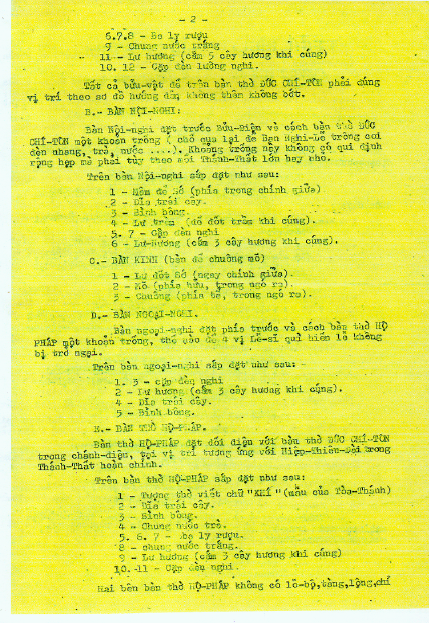 - 2 -
6.7.8 - Ba ly rượu
9 - Chung nước trắng
11 - Lư hương (cắm 5 cây hương khi cúng)
10. 12 - Cặp đèn lưỡng nghi.
Tất cả bửu-vật để trên bàn thờ ĐỨC CHÍ-TÔN phải đúng
vị trí theo sơ đồ hướng dẫn không thêm không bớt.
B.- BÀN NỘI-NGHI.
Bàn Nội-nghi đặt trước Bửu-Điện và cách bàn thờ ĐỨC
CHÍ-TÔN một khoản trống ( chổ qua lại để Ban Nghi-Lễ trông coi
đèn nhang, trà, nước ....). Khoảng trống này không có qui định
rộng hẹp mà phải tùy theo mỗi Thánh-Thất lớn hay nhỏ.
Trên bàn Nội-nghi sắp đặt như sau:
1 - Mâm để Sớ (phía trong chính giữa)
2 - Dĩa trái cây.
3 - Bình bông.
4 - Lư trầm (để đốt trầm khi cúng).
5. 7 - Cặp đèn nghi
6 - Lư-Hương (cắm 3 cây hương khi cúng).
C.- BÀN KINH (bàn để chuông mõ)
1 - Lư đốt Sớ (ngay chính giữa).
2 - Mõ (phía hữu, trong ngó ra).
3 - Chuông (phía tả, trong ngó ra).
D.- BÀN NGOẠI-NGHI.
Bàn ngoại-nghi đặt phía trước và cách bàn thờ HỘ
PHÁP một khoản trống, thế nào để 4 vị Lễ-sĩ quì hiến lễ không
bị trở ngại.
Trên bàn ngoại-nghi sắp đặt như sau:-
1. 3 - cặp đèn nghi
2 - Lư hương (cắm 3 cây hương khi cúng).
4 - Dĩa trái cây.
5 - Bình bông.
E.- BÀN THỜ HỘ-PHÁP.
Bàn thờ HỘ-PHÁP đặt đối diện với bàn thờ ĐỨC CHÍ-TÔN
trong chánh-điện, tại vị trí tương ứng với Hiệp-Thiên-Đài trong
Thánh-Thất hoàn chỉnh.
Trên bàn thờ HỘ-PHÁP sắp đặt như sau:
1 - Tượng thờ viết chữ "KHÍ" (mẫu của Tòa-Thánh)
2 - Dĩa trái cây.
3 - Bình bông.
4 - Chung nước trà.
5. 6. 7 - Ba ly rượu.
8 - chung nước trắng.
9 - Lư hương (cắm 3 cây hương khi cúng)
10.-11 - Cặp đèn nghi.
Hai bên bàn thờ HỘ-PHÁP không có lỗ-bộ,tàng,lộng,chỉ